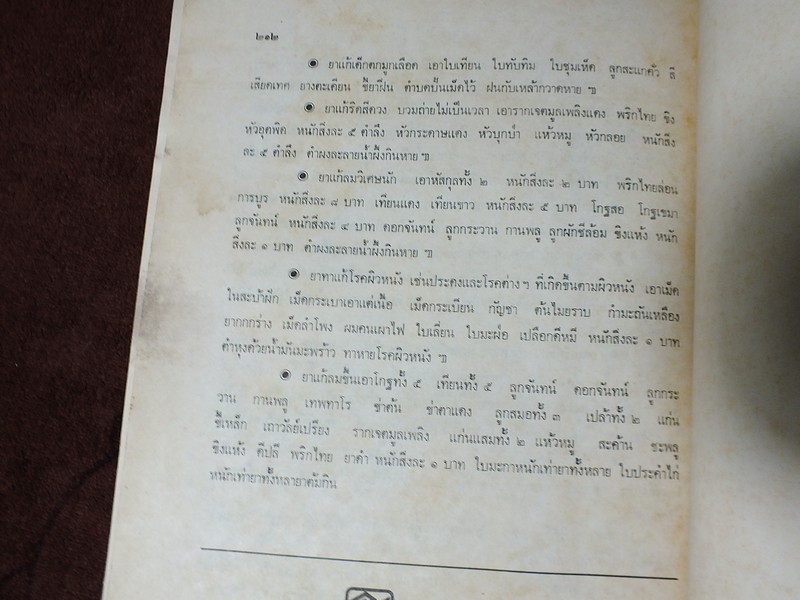 ๒๑๒
◉ ยาแก้เด็กตกมูกเลือด เอาใบเทียน ใบทับทิม ใบชุมเห็ด ลูกสะแกคั่ว สี
เสียดเทศ ยางตะเคียน ขี้ยาฝิ่น ตำบดปั้นเม็ดไว้ ฝนกับเหล้ากวาดหาย ฯ
◉ ยาแก้ริดสีดวง บวมถ่ายไม่เป็นเวลา เอารากเจตมูลเพลิงแดง พริกไทย ขิง
หัวอุตพิด หนักสิ่งละ ๕ ตำลึง หัวกระดาษแดง หัวบุกบ้ำ แห้วหมู หัวกลอย หนักสิ่ง
ละ ๕ ตำลึง ตำผงละลายน้ำผึ้งกินหาย ฯ
◉ ยาแก้ลมวิเศษนัก เอาหัสกุลทั้ง ๒ หนักสิ่งละ ๒ บาท พริกไทยล่อน
การบูร หนักสิ่งละ ๘ บาท เทียนแดง เทียนขาว หนักสิ่งละ ๕ บาท โกฐสอ โกฐเขมา
ลูกจันทน์ หนักสิ่งละ ๔ บาท ดอกจันทน์ ลูกกระวาน กานพลู ลูกผักชีล้อม ขิงแห้ง หนัก
สิ่งละ ๑ บาท ตำผงละลายน้ำผึ้งกินหาย ฯ
◉ ยาทาแก้โรคผิวหนัง เช่นประดงและโรคต่าง ๆ ที่เกิดขึ้นตามผิวหนัง เอาเม็ด
ในสะบ้าฝัก เม็ดกระเบาเอาแต่เนื้อ เม็ดกระเบียน กัญชา ต้นไมยราบ กำมะถันเหลือง
ยากกกร่าง เม็ดลำโพง ผมคนเผาไฟ ใบเลี่ยน ใบมะผ่อ เปลือกตีหมี หนักสิ่งละ ๑ บาท
ตำหุงด้วยน้ำมันมะพร้าว ทาหายโรคผิวหนัง ฯ
◉ ยาแก้ลมขึ้นเอาโกฐทั้ง ๕ เทียนทั้ง ๕ ลูกจันทน์ ดอกจันทน์ ลูกกระ
วาน กานพลู เทพทาโร ข่าต้น ข่าตาแดง ลูกสมอทั้ง ๓ เปล้าทั้ง ๒ แก่น
ขี้เหล็ก เถาวัลย์เปรียง รากเจตมูลเพลิง แก่นแสมทั้ง ๒ แห้วหมู สะค้าน ชะพลู
ขิงแห้ง ดีปลี พริกไทย ยาดำ หนักสิ่งละ ๑ บาท ใบมะกาหนักเท่ายาทั้งหลาย ใบประคำไก่
หนักเท่ายาทั้งหลายาต้มกิน